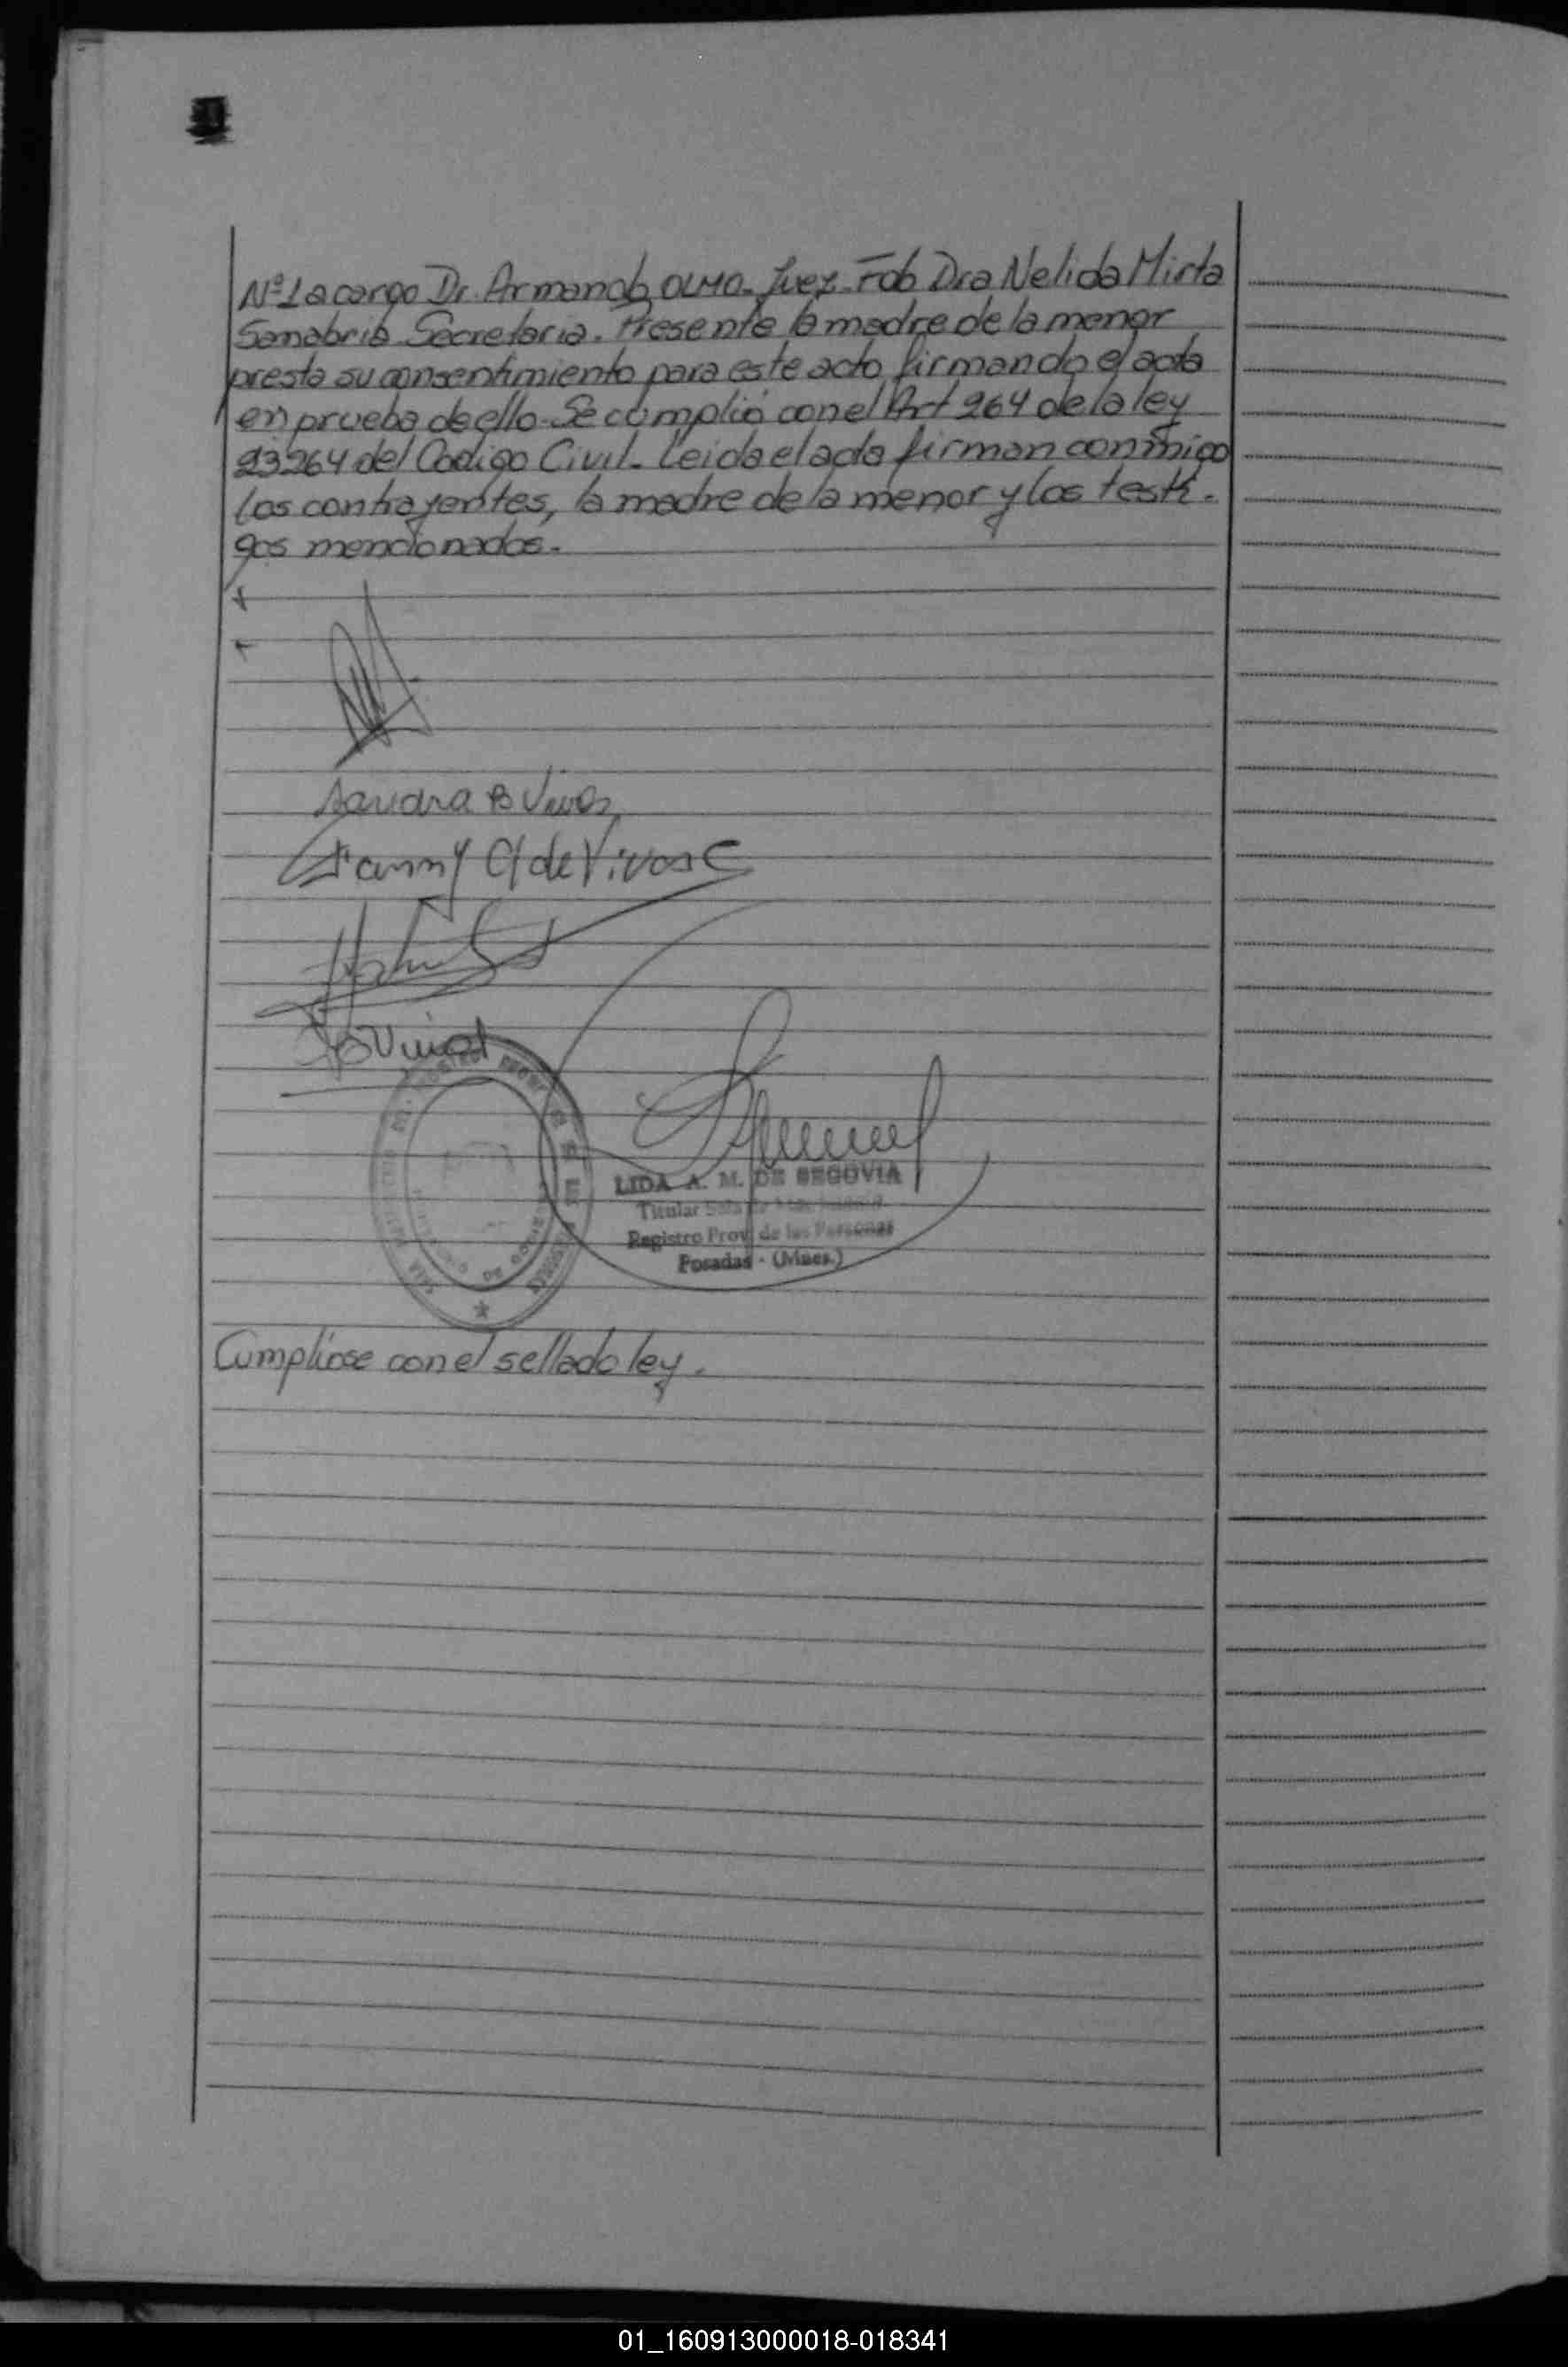 Nº 1 a cargo Dr. Armando OLMO. Juez. Fdo Dra Nelida Mirta
Sanabria Secretaria. Presente la madre de la menor
presta su consentimiento para este acto firmando el acta
en prueba de ello. Se cumplió con el Art 264 de la ley
23264 del Codigo Civil. Leida el acta firman conmigo
los contrayentes, la madre de la menor y los testi-
gos mencionados.
Sandra B Vivos
Fanny C de Vivos
LIDA A. M. DE SEGOVIA
Titular
Registro Prov. de las Personas
Posadas - (Mnes.)
Cumpliose con el sellado ley.
01_160913000018-018341